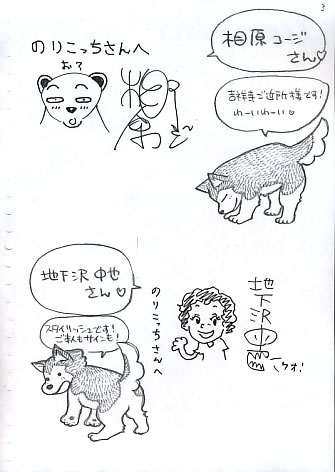 のりこっちさんへ
相原コージ
さん♡
吉祥寺ご近所様です!
わーいわーい♡
地下沢中也
さん♡
スタイリッシュです!
ご本人もサインも!
のりこっちさんへ
地下沢中也
クオ!